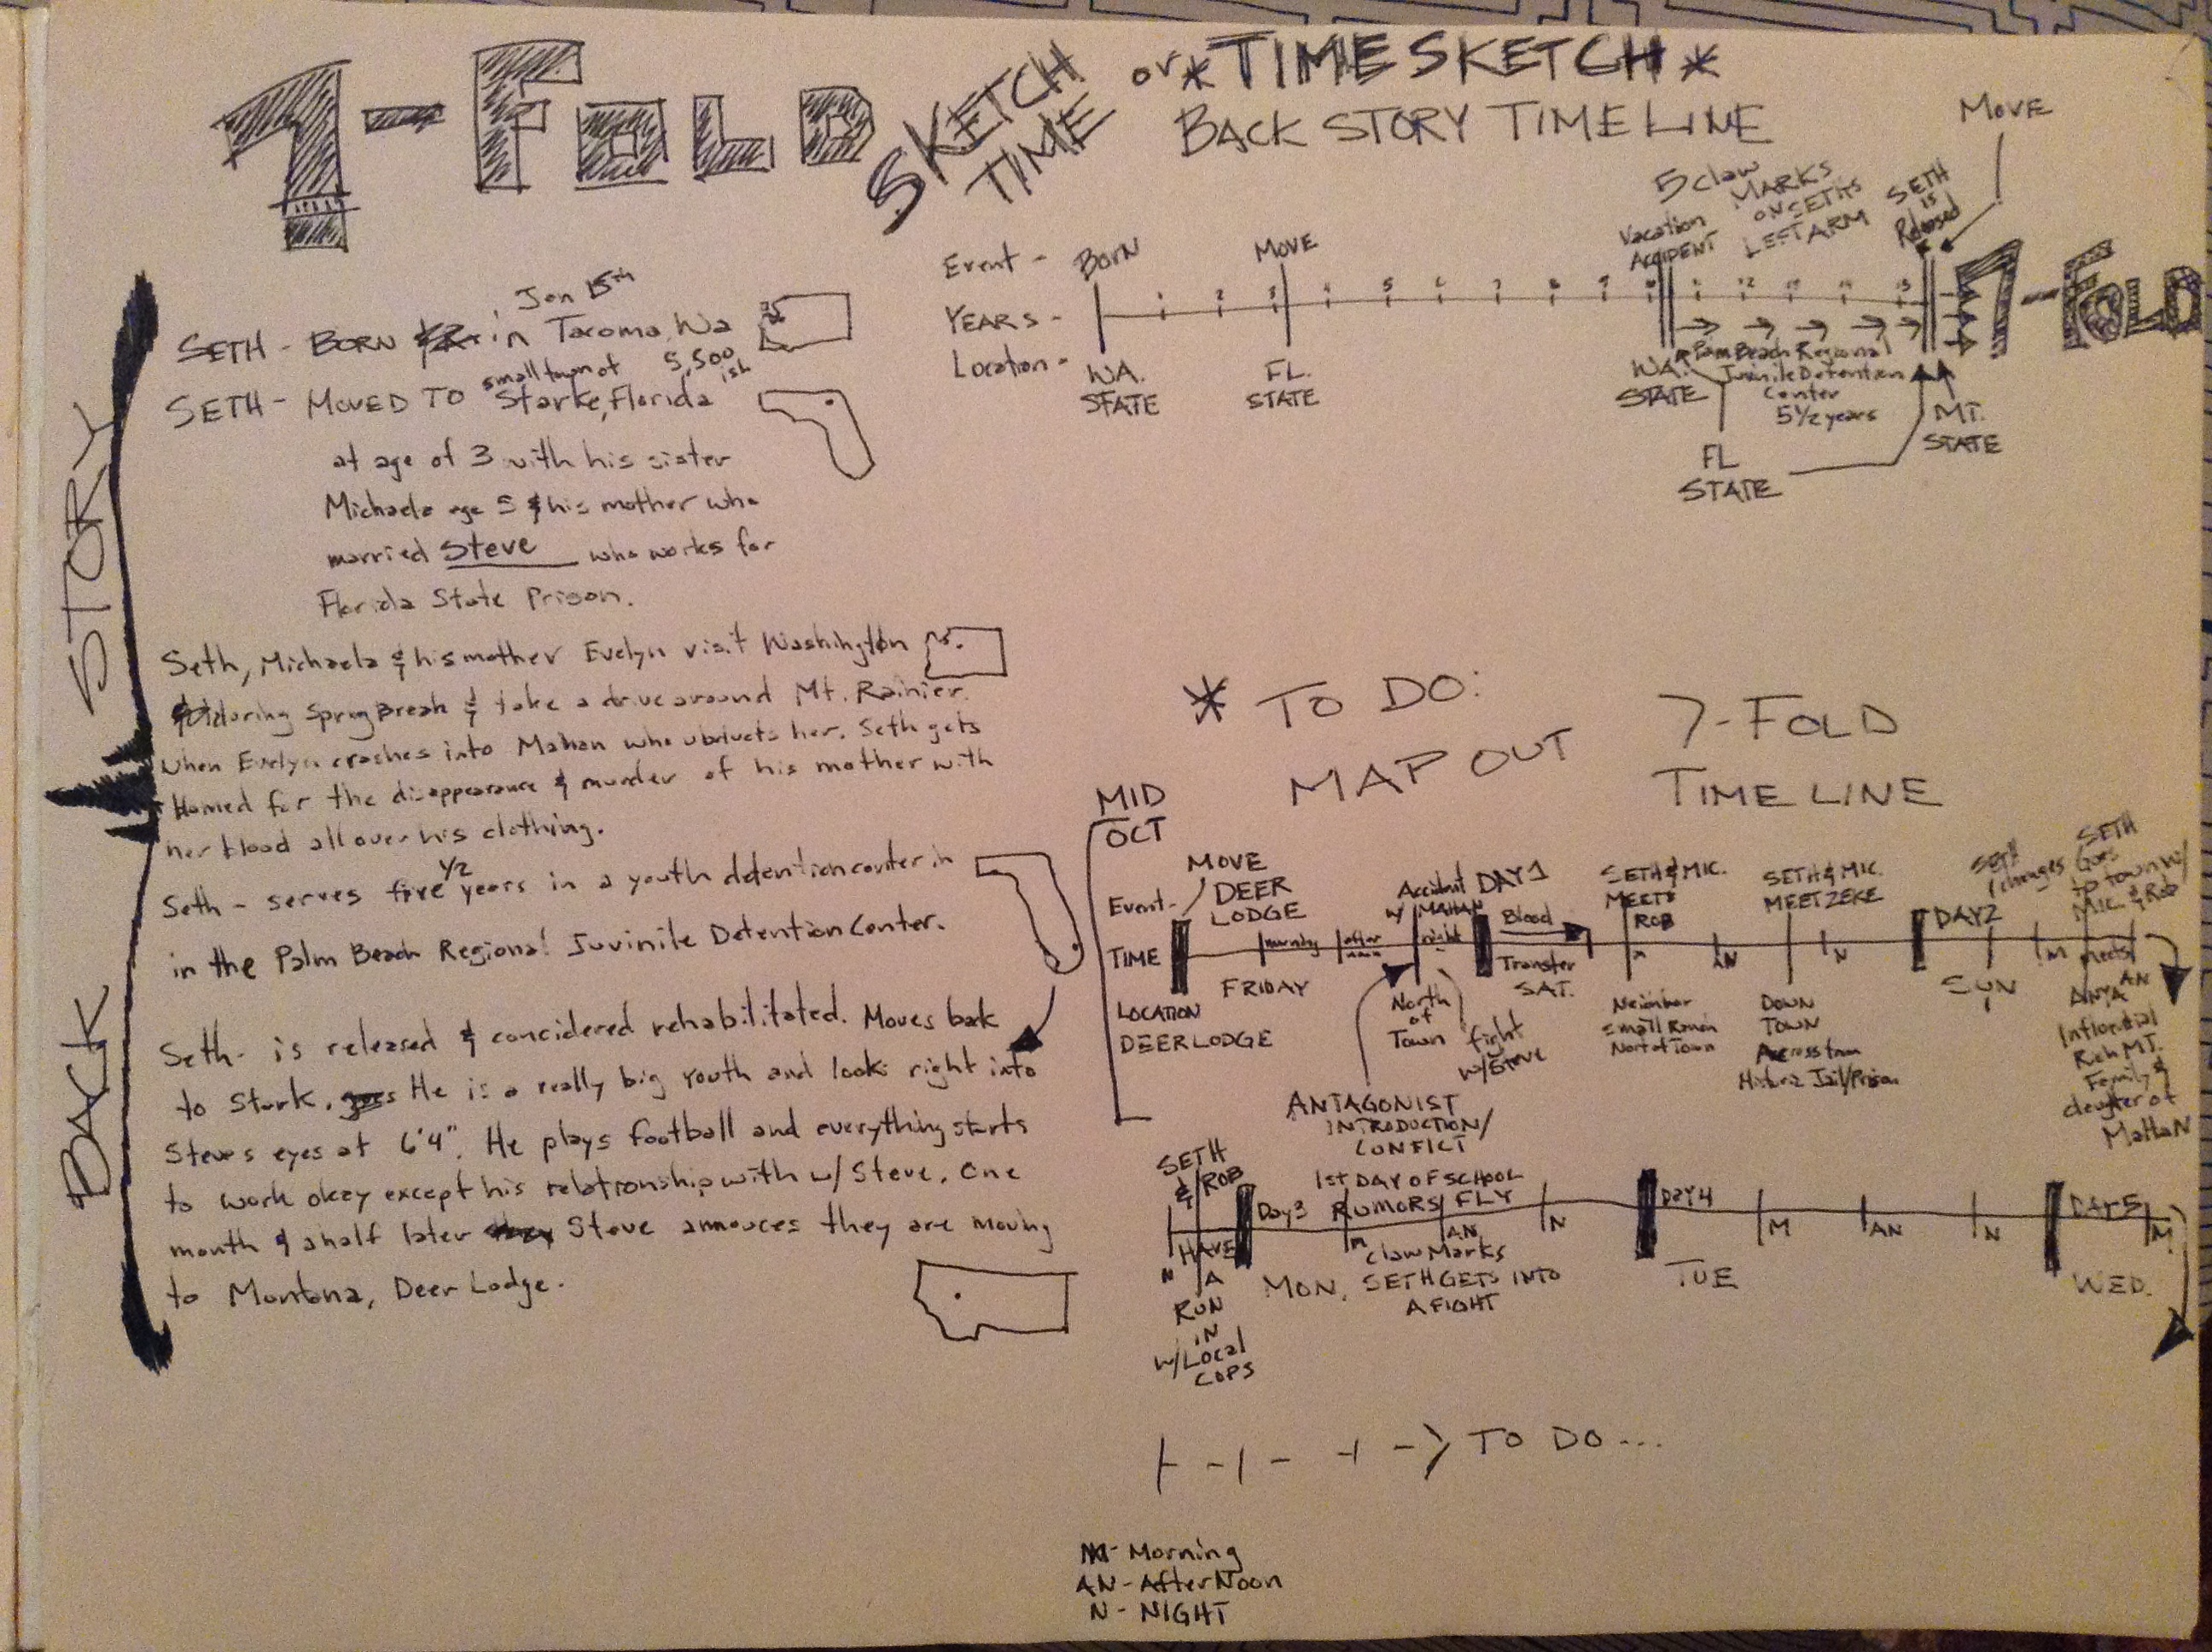 7-FOLD
SKETCH
TIME
or * TIMESKETCH *
BACK STORY TIME LINE
MOVE
5 claw
MARKS
ON SETHS
LEFT ARM
SETH
is
Released
Vacation
ACCIDENT
Event - BORN MOVE
YEARS -
1 2 3 4 5 6 7 8 9 10 11 12 13 14 15
7-FOLD
Location - WA. STATE
FL. STATE
WA. STATE
Palm Beach Regional
Juvinile Detention
Center
5 1/2 years
FL
STATE
MT.
STATE
BACK STORY
Jan 15th
SETH - BORN in Tacoma, Wa
small town of 5,500 ish
SETH - MOVED TO Starke, Florida
at age of 3 with his sister
Michaela age 5 & his mother who
married Steve who works for
Florida State Prison.
Seth, Michaela & his mother Evelyn visit Washington
during Spring Break & take a drive around Mt. Rainier
when Evelyn crashes into Mahan who abducts her. Seth gets
blamed for the disappearance & murder of his mother with
her blood all over his clothing.
1/2
Seth - serves five years in a youth ddention center in
in the Palm Beach Regional Juvinile Detention Center.
Seth - is released & concidered rehabilitated. Moves back
to Stark. He is a really big youth and looks right into
Steve's eyes at 6'4". He plays football and everything starts
to work okey except his relationship with w/ Steve. One
month & a half later Steve annouces they are moving
to Montana, Deer Lodge.
* TO DO:
MAP OUT 7-FOLD
TIME LINE
MID
OCT
Event - MOVE
DEER
LODGE
Accident
w/ MAHAN
DAY 1
Blood
Transfer
SETH & MIC.
MEETS
ROB
SETH & MIC.
MEET ZEKE
DAY 2
SETH
changes
SETH
Goes
to town w/
MIC & Rob
TIME morning after noon night M AN N M AN
FRIDAY SAT. SUN
LOCATION
DEER LODGE
North
of
Town
fight
w/ Steve
Neighbor
Small Ranch
North of Town
DOWN
TOWN
Across from
Historic Jail/Prison
meets
ANYA
Influential
Rich MT.
Family &
daughter of
MaHaN
ANTAGONIST
INTRODUCTION/
CONFICT
SETH
& ROB
HAVE
A
RUN
IN
w/ Local
COPS
N
Day 3
1st DAY OF SCHOOL
RUMORS FLY
M AN N
Claw Marks
MON. SETH GETS INTO
A FIGHT
DAY 4
M AN N
TUE
DAY 5
M
WED.
TO DO...
M - Morning
AN - AfterNoon
N - NIGHT